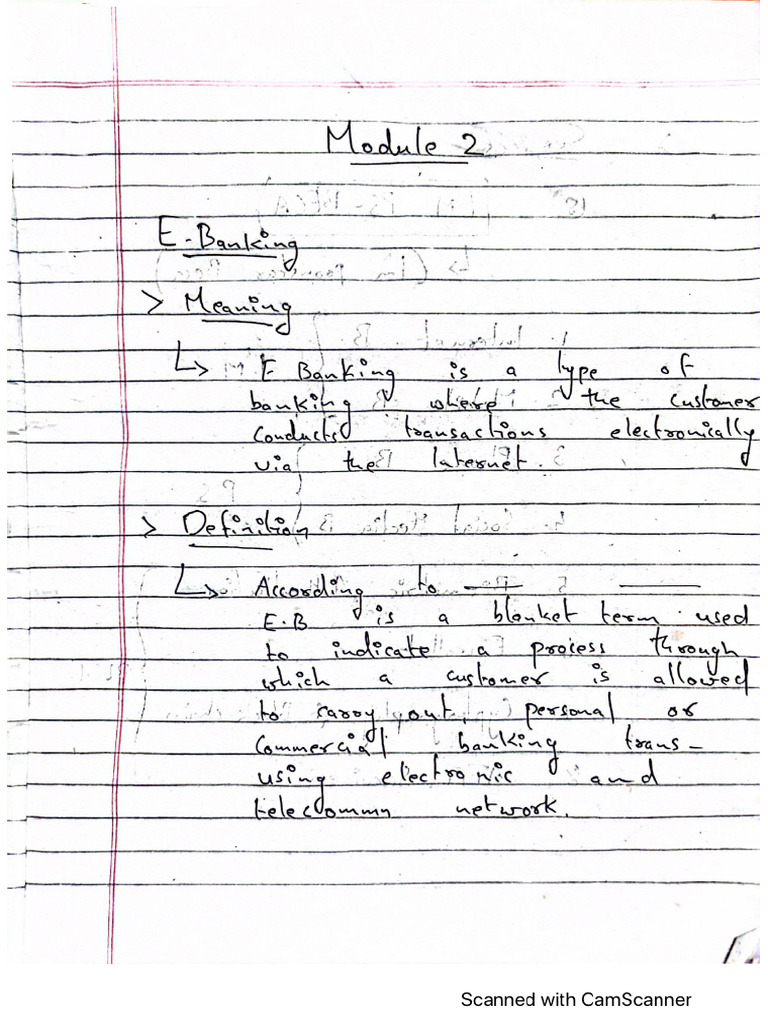 Module 2
E-Banking
> Meaning
↳ E Banking is a type of
banking where the customer
conducts transactions electronically
via the Internet.
> Definition
↳ According to —— ——
E.B is a blanket term used
to indicate a process through
which a customer is allowed
to carry out, personal or
commercial banking trans-
using electronic and
telecommn network.
Scanned with CamScanner